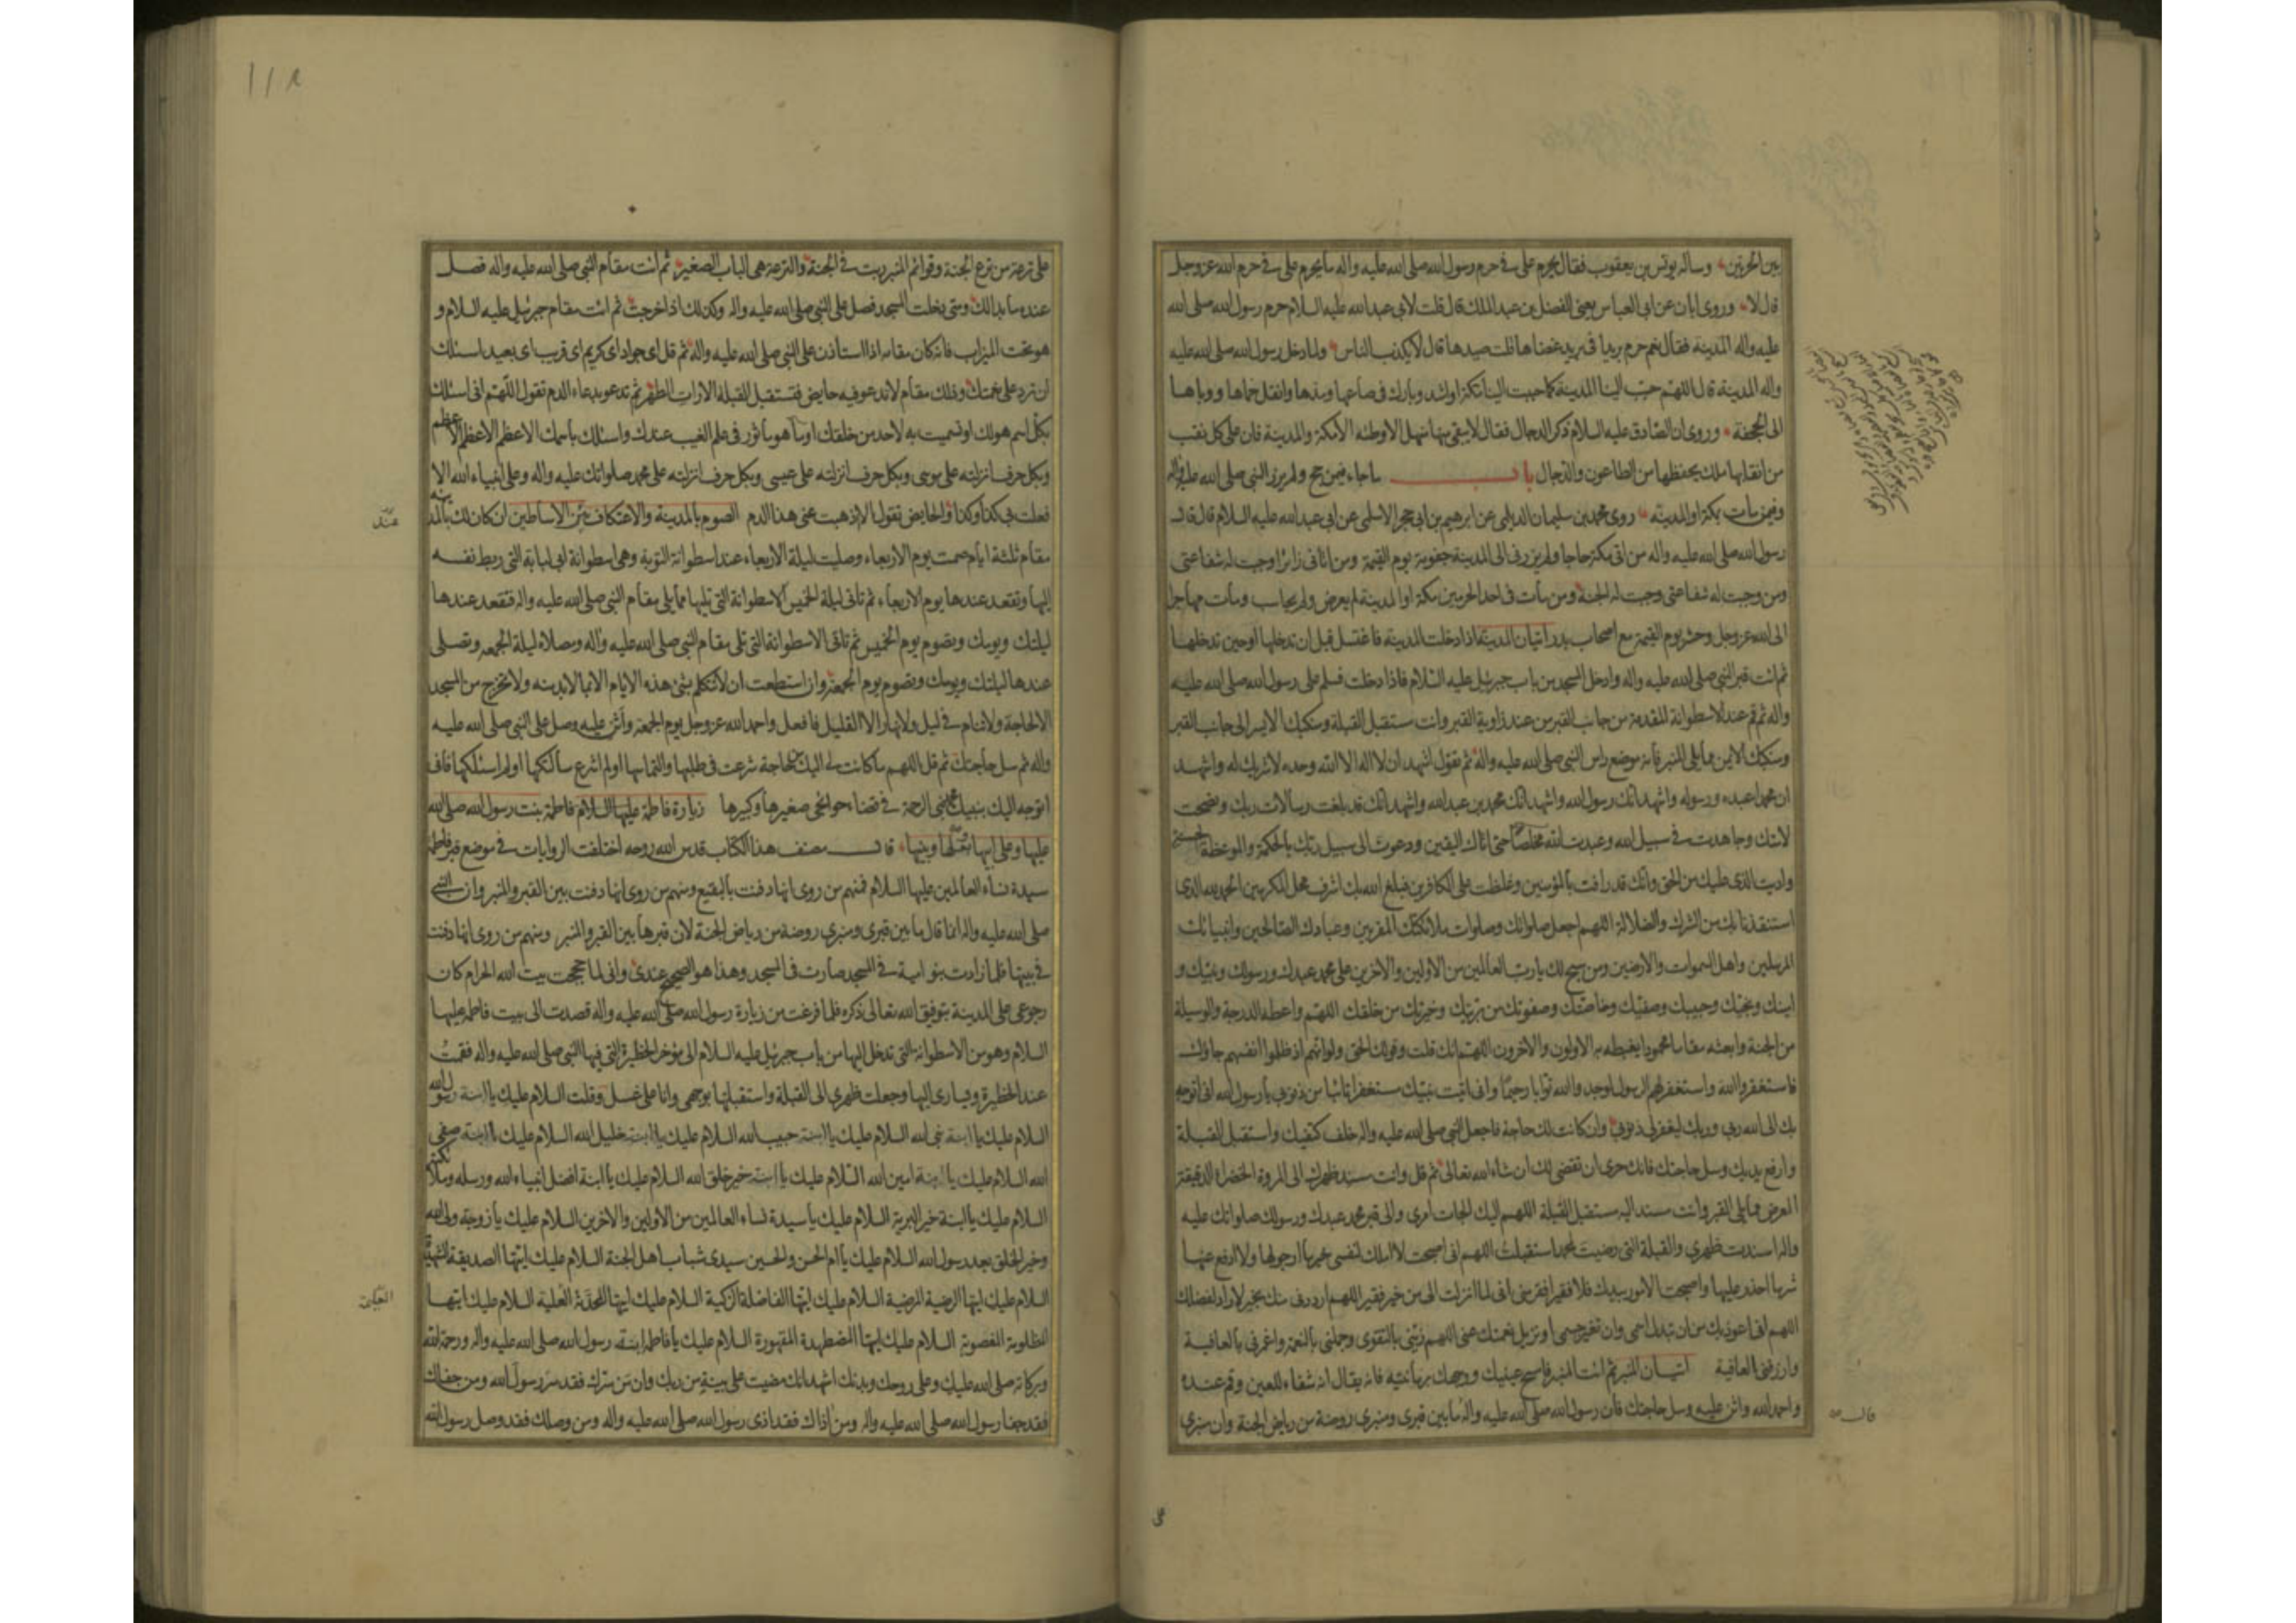 بين الحرتين وسأله يونس بن يعقوب فقال يحرم على في حرم رسول الله صلى الله عليه واله ما يحرم على في حرم الله عز وجل
قال لا وروى ابان عن ابى العباس يعنى الفضل بن عبد الملك قال قلت لابى عبد الله عليه السلام حرم رسول الله صلى الله
عليه واله المدينة فقال نعم حرم بريدا فى بريد غضاها قلت صيدها قال لا يكذب الناس ولما دخل رسول الله صلى الله عليه
واله المدينة قال اللهم حبب الينا المدينة كما حببت الينا مكة او اشد وبارك فى صاعها ومدها وانقل حماها ووباها
الى الجحفة وروى ان الصادق عليه السلام ذكر الدجال فقال لا يبقى منها سهل الا وطئه الا مكة والمدينة فان على كل نقب
من انقابها ملك يحفظها من الطاعون والدجال باب ما جاء فيمن حج ولم يزر النبي صلى الله عليه واله
وفيمن مات بمكة او المدينه روى محمد بن سليمان الديلمى عن ابرهيم بن ابى حجر الاسلمى عن ابى عبد الله عليه السلام قال قال
رسول الله صلى الله عليه واله من اتى مكة حاجا ولم يزرنى الى المدينة جفوته يوم القيمة ومن اتانى زائرا وجبت له شفاعتى
ومن وجبت له شفاعتى وجبت له الجنة ومن مات فى احد الحرمين مكة او المدينة لم يعرض ولم يحاسب ومات مهاجرا
الى الله عز وجل وحشر يوم القيمة مع اصحاب بدر اتيان المدينة اذا دخلت المدينه فاغتسل قبل ان تدخلها او حين تدخلها
ثم ائت قبر النبي صلى الله عليه واله وادخل المسجد من باب جبرئيل عليه السلام فاذا دخلت فسلم على رسول الله صلى الله عليه
واله ثم قم عند الاسطوانة المقدمة من جانب القبر من عند زاوية القبر وانت مستقبل القبلة ومنكبك الايسر الى جانب القبر
ومنكبك الايمن مما يلى المنبر فانه موضع راس النبي صلى الله عليه واله ثم تقول اشهد ان لا اله الا الله وحده لا شريك له واشهد
ان محمدا عبده ورسوله واشهد انك رسول الله واشهد انك محمد بن عبد الله واشهد انك قد بلغت رسالات ربك ونصحت
لامتك وجاهدت فى سبيل الله وعبدت الله مخلصا حتى اتاك اليقين ودعوت الى سبيل ربك بالحكمة والموعظة الحسنة
واديت الذى عليك من الحق وانك قد رافت بالمؤمنين وغلظت على الكافرين فبلغ الله بك اشرف محل المكرمين الحمد لله الذى
استنقذنا بك من الشرك والضلالة اللهم اجعل صلواتك وصلوات ملائكتك المقربين وعبادك الصالحين وانبيائك
المرسلين واهل السموات والارضين ومن سبح لك يا رب العالمين من الاولين والاخرين على محمد عبدك ورسولك ونبيك و
امينك ونجيك وحبيبك وصفيك وخاصتك وصفوتك من بريتك وخيرتك من خلقك اللهم واعطه الدرجة والوسيلة
من الجنة وابعثه مقاما محمودا يغبطه به الاولون والاخرون اللهم انك قلت وقولك الحق ولو انهم اذ ظلموا انفسهم جاؤك
فاستغفروا الله واستغفر لهم الرسول لوجدوا الله توابا رحيما وانى اتيت نبيك مستغفرا تائبا من ذنوبى يا رسول الله انى اتوجه
بك الى الله ربى وربك ليغفر لى ذنوبى وان كانت لك حاجة فاجعل النبي صلى الله عليه واله خلف كتفيك واستقبل القبلة
وارفع يديك وسل حاجتك فانك حرى ان تقضى لك ان شاء الله تعالى ثم قل وانت مسند ظهرك الى المروة الخضراء الدقيقة
العرض مما يلى القبر وانت مسند اليه مستقبل القبلة اللهم اليك الجات امرى والى قبر محمد عبدك ورسولك صلواتك عليه
واله اسندت ظهرى والقبلة التى رضيت لمحمد استقبلت اللهم انى اصبحت لا املك لنفسى خير ما ارجو لها ولا ادفع عنها
شر ما احذر عليها واصبحت الامور بيدك فلا فقير افقر منى انى لما انزلت الى من خير فقير اللهم ارددنى منك بخير لا راد لفضلك
اللهم انى اعوذ بك من ان تبدل اسمى وان تغير جسمى او تزيل نعمتك عنى اللهم زينى بالتقوى وجملنى بالنعمة واغمرنى بالعافية
وارزقنى العافية اتيان المنبر ثم ائت المنبر فامسح عينيك ووجهك برمانتيه فانه يقال انه شفاء للعين وقم عنده
واحمد الله واثن عليه وسل حاجتك فان رسول الله صلى الله عليه واله ما بين قبرى ومنبرى روضة من رياض الجنة وان منبرى
قال
على ترعة من ترع الجنة وقوائم المنبر ربت فى الجنة والترعة هى الباب الصغير ثم ائت مقام النبي صلى الله عليه واله فصل
عنده ما بدا لك ومتى دخلت المسجد فصل على النبي صلى الله عليه واله وكذلك اذا خرجت ثم ائت مقام جبرئيل عليه السلام و
هو تحت الميزاب فانه كان مقامه اذا استاذن على النبي صلى الله عليه واله ثم قل اى جواد اى كريم اى قريب اى بعيد اسئلك
ان ترد على نعمتك وذلك مقام لا تدعو فيه حايض فتستقبل القبلة الا رات الطهر ثم تدعو بدعاء الدم تقول اللهم انى اسئلك
بكل اسم هو لك او تسميت به لاحد من خلقك او ما هو ماثور فى علم الغيب عندك واسئلك باسمك الاعظم الاعظم الاعظم
وبكل حرف انزلته على موسى وبكل حرف انزلته على عيسى وبكل حرف انزلته على محمد صلواتك عليه واله وعلى انبياء الله الا
فعلت بى كذا وكذا والحايض تقول الا اذهبت عنى هذا الدم الصوم بالمدينة والاعتكاف عند الاساطين ان كان لك بالمدينه
مقام ثلثة ايام صمت يوم الاربعاء وصليت ليلة الاربعاء عند اسطوانة التوبة وهى اسطوانة ابى لبابة التى ربط نفسه
اليها وتقعد عندها يوم الاربعاء ثم تاتى ليلة الخميس الاسطوانة التى تليها مما يلى مقام النبي صلى الله عليه واله فتقعد عندها
ليلتك ويومك وتصوم يوم الخميس ثم تاتى الاسطوانة التى تلى مقام النبي صلى الله عليه واله ومصلاه ليلة الجمعه وتصلى
عندها ليلتك ويومك وتصوم يوم الجمعة وان استطعت ان لا تتكلم بشئ هذه الايام الا بما لا بد منه ولا تخرج من المسجد
الا لحاجة ولا تنام فى ليل ولا نهار الا القليل فافعل واحمد الله عز وجل يوم الجمعة واثن عليه وصل على النبي صلى الله عليه
واله ثم سل حاجتك ثم قل اللهم ما كانت لى اليك من حاجة شرعت فى طلبها والتماسها او لم اشرع سالتكها او لم اسئلكها فانى
اتوجه اليك بنبيك محمد نبى الرحمة فى قضاء حوائجى صغيرها وكبيرها زيارة فاطمة عليها السلام فاطمة بنت رسول الله صلى الله
عليها وعلى ابيها وبعلها وبنيها قال مصنف هذا الكتاب قدس الله روحه اختلفت الروايات فى موضع قبر فاطمة
سيدة نساء العالمين عليها السلام فمنهم من روى انها دفنت بالبقيع ومنهم من روى انها دفنت بين القبر والمنبر وان النبي
صلى الله عليه واله انما قال ما بين قبرى ومنبرى روضة من رياض الجنة لان قبرها بين القبر والمنبر ومنهم من روى انها دفنت
فى بيتها فلما زادت بنو امية فى المسجد صارت فى المسجد وهذا هو الصحيح عندى وانى لما حججت بيت الله الحرام كان
رجوعى على المدينة بتوفيق الله تعالى ذكره فلما فرغت من زيارة رسول الله صلى الله عليه واله قصدت الى بيت فاطمة عليها
السلام وهو من الاسطوانة التى تدخل اليها من باب جبرئيل عليه السلام الى مؤخر الحظيرة التى فيها النبي صلى الله عليه واله فقمت
عند الحظيرة ويسارى اليها وجعلت ظهرى الى القبلة واستقبلتها بوجهى وانا على غسل وقلت السلام عليك يا ابنة رسول الله
السلام عليك يا ابنة نبى الله السلام عليك يا ابنة حبيب الله السلام عليك يا ابنة خليل الله السلام عليك يا ابنة صفى
الله السلام عليك يا ابنة امين الله السلام عليك يا ابنة خير خلق الله السلام عليك يا ابنة افضل انبياء الله ورسله وملائكته
السلام عليك يا ابنة خير البرية السلام عليك يا سيدة نساء العالمين من الاولين والاخرين السلام عليك يا زوجة ولى الله
وخير الخلق بعد رسول الله السلام عليك يا ام الحسن والحسين سيدى شباب اهل الجنة السلام عليك ايتها الصديقة الشهيدة
السلام عليك ايتها الرضية المرضية السلام عليك ايتها الفاضلة الزكية السلام عليك ايتها المحدثة العليمة السلام عليك ايتها
المظلومة المغصوبة السلام عليك ايتها المضطهدة المقهورة السلام عليك يا فاطمة ابنة رسول الله صلى الله عليه واله ورحمة الله
وبركاته صلى الله عليك وعلى روحك وبدنك اشهد انك مضيت على بينة من ربك وان من سرك فقد سر رسول الله ومن جفاك
فقد جفا رسول الله صلى الله عليه واله ومن اذاك فقد اذى رسول الله صلى الله عليه واله ومن وصلك فقد وصل رسول الله
عند